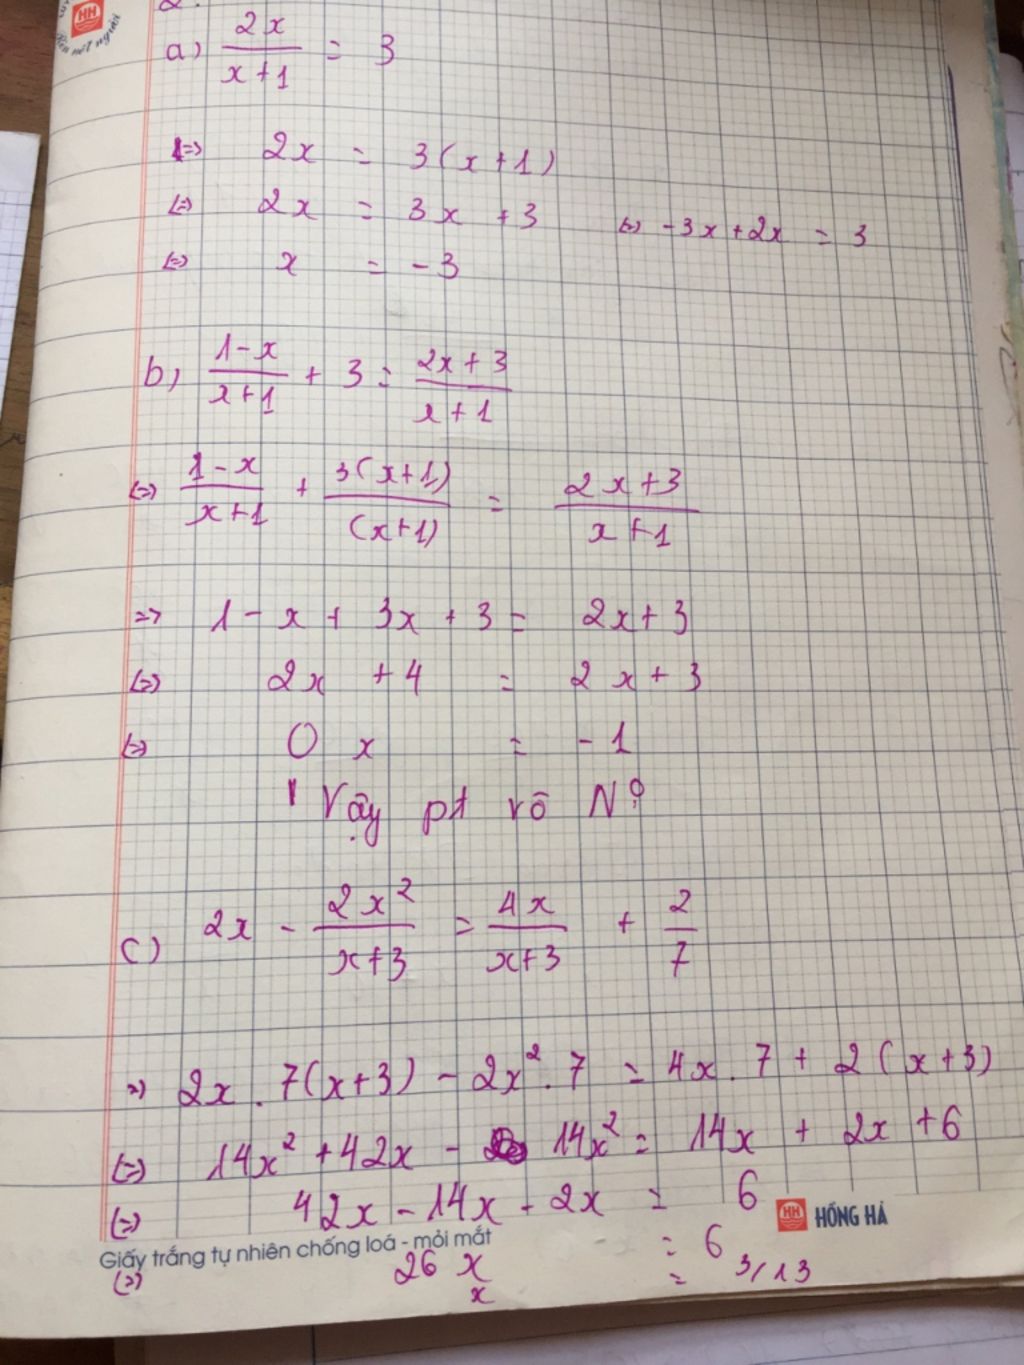 HH
nét người
a) 2x / x+1 = 3
<=> 2x = 3(x+1)
<=> 2x = 3x + 3 <=> -3x + 2x = 3
<=> x = -3
b) 1-x / x+1 + 3 = 2x+3 / x+1
<=> 1-x / x+1 + 3(x+1) / (x+1) = 2x+3 / x+1
=> 1 - x + 3x + 3 = 2x + 3
<=> 2x + 4 = 2x + 3
<=> 0x = -1
Vậy pt vô N⁰
c) 2x - 2x² / x+3 = 4x / x+3 + 2 / 7
=> 2x . 7(x+3) - 2x² . 7 = 4x . 7 + 2(x+3)
<=> 14x² + 42x - 14x² = 14x + 2x + 6
<=> 42x - 14x - 2x = 6
HH HỒNG HÀ
Giấy trắng tự nhiên chống loá - mỏi mắt
<=> 26x = 6
x = 3/13